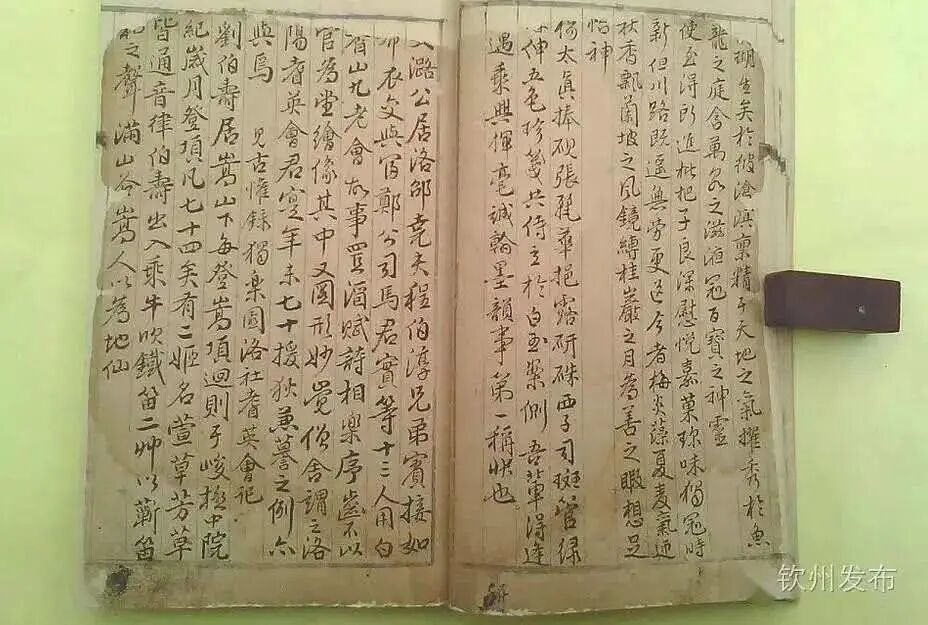 湖生矣於彼滄溟稟精于天地之氣擢秀於魚
龍之庭含萬家之滋液冠百寶之神靈
使至得所送枇杷子良深慰悅嘉菓珍味獨冠時
新但川路既遙無勞更送今者梅炎藻夏麦氣迎
秋香飄蘭坡之風鏡縛桂巖之月為善之暇想足
怡神
倚太真捧硯張麗華挹露研硃西子司斑管綠
伸五色珍箋共侍立於白玉案側吾輩得逢
遇乘興揮毫誠翰墨韻事第一稱快也
文潞公居洛邵堯夫程伯淳兄弟賓接如
布衣交與富鄭公司馬君實等十三人用白
香山九老會故事置酒賦詩相樂序齒不以
官為堂繪像其中又圖形妙覺僧舍謂之洛
陽耆英會君實年未七十援狄兼謩之例亦
與焉 見古懽錄獨樂園洛社耆英會記
劉伯壽居嵩山下每登嵩頂迴則于峻極中院
紀歲月登項凡七十四矣有二姬名萱草芳草
皆通音律伯壽出入乘牛吹鐵笛二艸以蘄笛
和之聲滿山谷嵩人以為地仙
钦州发布